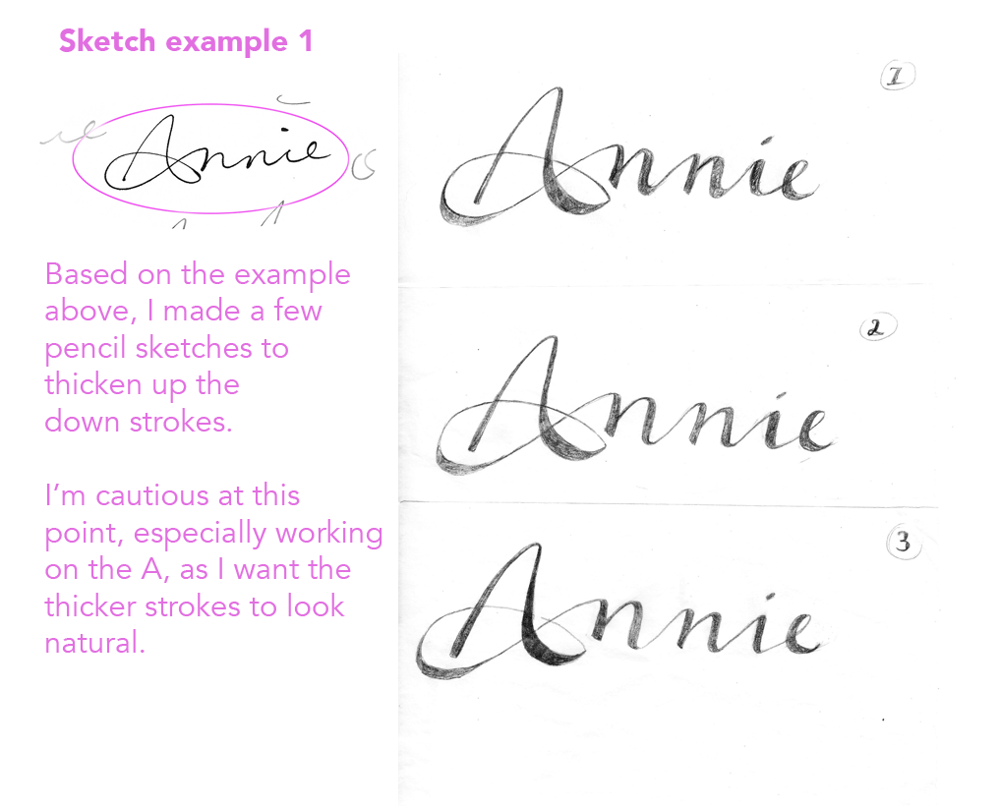 Sketch example 1
Annie
Based on the example
above, I made a few
pencil sketches to
thicken up the
down strokes.
I'm cautious at this
point, especially working
on the A, as I want the
thicker strokes to look
natural.
1
Annie
2
Annie
3
Annie